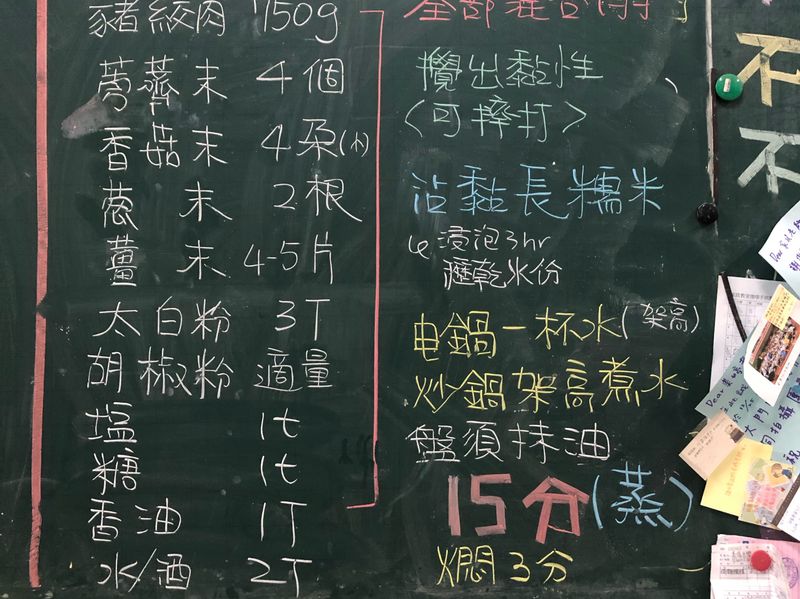 豬絞肉 150g
荸薺末 4個
香菇末 4朵(小)
蔥 末 2根
薑 末 4-5片
太白粉 3T
胡椒粉 適量
塩 1t
糖 1t
香油 1T
水/酒 2T
全部混合
攪出黏性
<可摔打>
沾黏長糯米
浸泡3hr
瀝乾水份
电鍋一杯水(架高)
炒鍋架高煮水
盤須抹油
15分(蒸)
燜3分
不
不